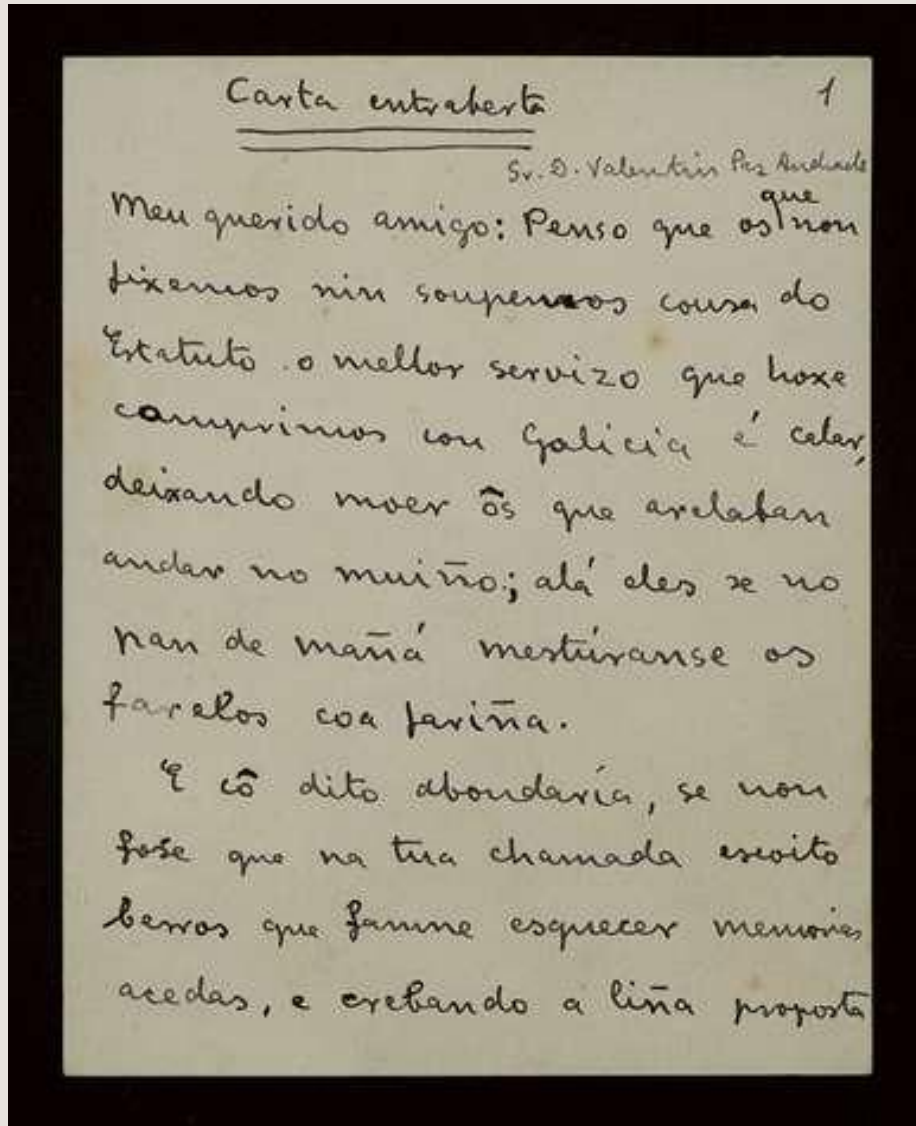 Carta entraberta
1
Sr. D. Valentin Paz Andrade
Meu querido amigo: Penso que os que non
fixemos nin soupemos cousa do
Estatuto o mellor servizo que hoxe
comprimos con Galicia é calar,
deixando moer ôs que arelaban
andar no muiño; alá eles se no
pan de mañá mestúranse os
farelos coa fariña.
E cô dito abondaría, se non
fose que na tua chamada escoito
berros que fanme esquecer memorias
acedas, e crebando a liña proposta